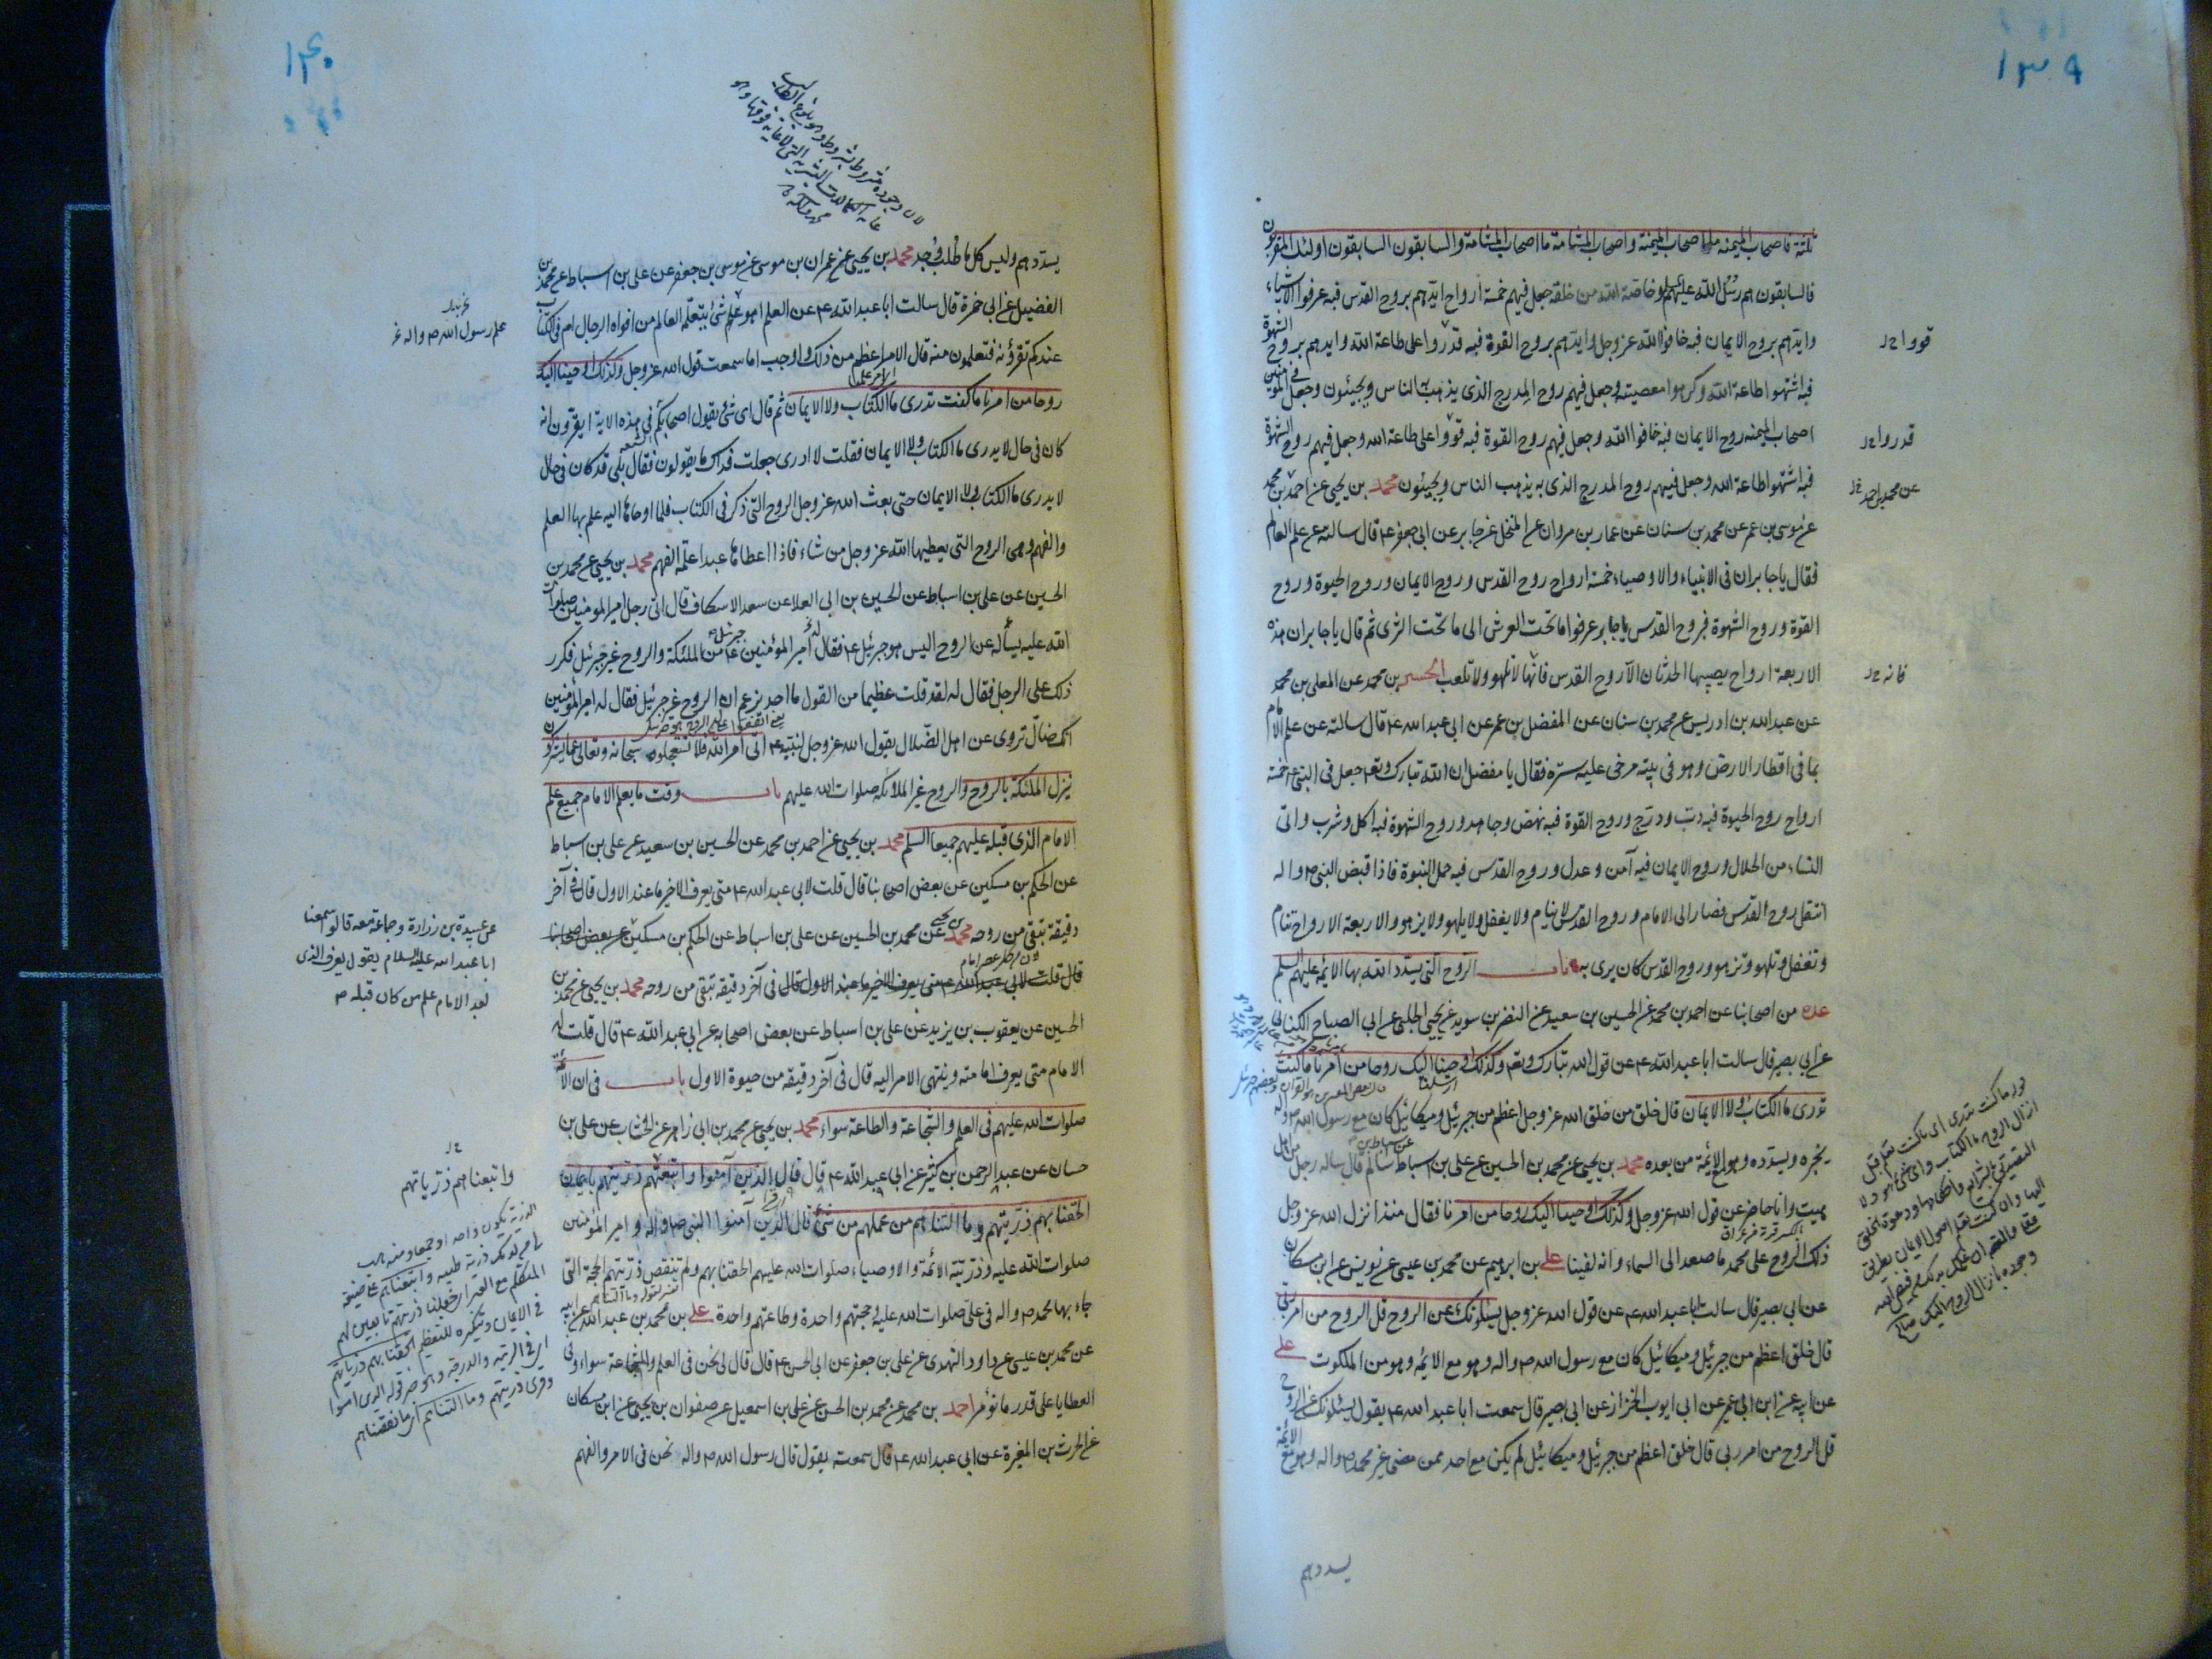 ١٣٩
ثلثة فاصحاب الميمنه ما اصحاب الميمنة واصحاب المشامة ما اصحاب المشامة والسابقون السابقون اولئك المقربون
فالسابقون هم رسل الله عليهم وخاصة الله من خلقه جعل فيهم خمسة ارواح ايدهم بروح القدس فبه عرفوا الاشياء
وايدهم بروح الايمان فبه خافوا الله عز وجل وايدهم بروح القوة فبه قدروا على طاعة الله وايدهم بروح الشهوة
فبه اشتهوا طاعة الله وكرهوا معصيته وجعل فيهم روح المدرج الذى يذهب به الناس ويجيئون وجعل فى المومنين
اصحاب الميمنه روح الايمان فبه خافوا الله وجعل فيهم روح القوة فبه قووا على طاعة الله وجعل فيهم روح الشهوة
فبه اشتهوا طاعة الله وجعل فيهم روح المدرج الذى به يذهب الناس ويجيئون محمد بن يحيى عن احمد بن محمد
عن موسى بن عمر عن محمد بن سنان عن عمار بن مروان عن المنخل عن جابر عن ابى جعفر ع قال سالته عن علم العالم
فقال يا جابر ان فى الانبياء والاوصياء خمسة ارواح روح القدس وروح الايمان وروح الحيوة وروح
القوة وروح الشهوة فبروح القدس يا جابر عرفوا ما تحت العرش الى ما تحت الثرى ثم قال يا جابر ان هذه
الاربعة ارواح يصيبها الحدثان الا روح القدس فانها لا تلهو ولا تلعب الحسين بن محمد عن المعلى بن محمد
عن عبدالله بن ادريس عن محمد بن سنان عن المفضل بن عمر عن ابى عبد الله ع قال سالته عن علم الامام
بما فى اقطار الارض وهو فى بيته مرخى عليه ستره فقال يا مفضل ان الله تبارك وتع جعل فى النبى ع خمسة
ارواح روح الحيوة فبه دب ودرج وروح القوة فبه نهض وجاهد وروح الشهوة فبه اكل وشرب واتى
النساء من الحلال وروح الايمان فبه آمن وعدل وروح القدس فبه حمل النبوة فاذا قبض النبى ص واله
انتقل روح القدس فصار الى الامام وروح القدس لا ينام ولا يغفل ولا يلهو ولا يزهو والاربعة الارواح تنام
وتغفل وتلهو وتزهو وروح القدس كان يرى به باب الروح التى يسدد الله بها الائمة عليهم السلم
عدة من اصحابنا عن احمد بن محمد عن الحسين بن سعيد عن النضر بن سويد عن يحيى الحلبى عن ابى الصباح الكنانى
عن ابى بصير قال سالت ابا عبد الله ع عن قول الله تبارك وتع وكذلك اوحينا اليك روحا من امرنا ما كنت
تدرى ما الكتاب ولا الايمان قال خلق من خلق الله عز وجل اعظم من جبرئيل وميكائيل كان مع رسول الله ص واله
يخبره ويسدده وهو مع الائمة من بعده محمد بن يحيى عن محمد بن الحسين عن على بن اسباط عن اسباط بن سالم قال ساله رجل من اهل
هيت وانا حاضر عن قول الله عز وجل وكذلك اوحينا اليك روحا من امرنا فقال منذ انزل الله عز وجل
ذلك الروح على محمد ما صعد الى السماء وانه لفينا على بن ابرهيم عن محمد بن عيسى عن يونس عن ابن مسكان
عن ابى بصير قال سالت ابا عبد الله ع عن قول الله عز وجل يسئلونك عن الروح قل الروح من امر ربى
قال خلق اعظم من جبرئيل وميكائيل كان مع رسول الله ص واله وهو مع الائمة وهو من الملكوت على
عن ابيه عن ابن ابى عمير عن ابى ايوب الخزاز عن ابى بصير قال سمعت ابا عبد الله ع يقول يسئلونك عن الروح
قل الروح من امر ربى قال خلق اعظم من جبرئيل وميكائيل لم يكن مع احد ممن مضى غير محمد ص واله وهو مع الائمة
يسددهم
قووا خ
قدروا خ
عن محمد بن احمد خ
فانه خ
١٤٠
يسددهم وليس كل ما طلب وجد محمد بن يحيى عن عمران بن موسى عن موسى بن جعفر عن على بن اسباط عن محمد بن
الفضيل عن ابى حمزة قال سالت ابا عبد الله ع عن العلم اهو علم شئ يتعلمه العالم من افواه الرجال ام فى الكتاب
عندكم تقرؤنه فتعلمون منه قال الامر اعظم من ذلك واوجب اما سمعت قول الله عز وجل وكذلك اوحينا اليك
روحا من امرنا ما كنت تدرى ما الكتاب ولا الايمان ثم قال اى شئ يقول اصحابكم فى هذه الاية ايقرون انه
كان فى حال لا يدرى ما الكتاب ولا الايمان فقلت لا ادرى جعلت فداك ما يقولون فقال بلى قد كان فى حال
لا يدرى ما الكتاب ولا الايمان حتى بعث الله عز وجل الروح التى ذكر فى الكتاب فلما اوحاها اليه علم بها العلم
والفهم وهى الروح التى يعطيها الله عز وجل من شاء فاذا اعطاها عبدا علمه الفهم محمد بن يحيى عن محمد بن
الحسين عن على بن اسباط عن الحسين بن ابى العلا عن سعد الاسكاف قال اتى رجل امير المومنين صلوات
الله عليه يسأله عن الروح اليس هو جبرئيل ع فقال له امير المؤمنين ع جبرئيل من الملئكة والروح غير جبرئيل فكرر
ذلك على الرجل فقال له لقد قلت عظيما من القول ما احد يزعم ان الروح غير جبرئيل فقال له امير المؤمنين
انك ضال تروى عن اهل الضلال يقول الله عز وجل لنبيه ع اتى امر الله فلا تستعجلوه سبحانه وتعالى عما يشركون
ينزل الملئكة بالروح والروح غير الملائكه صلوات الله عليهم باب وقت ما يعلم الامام جميع علم
الامام الذى قبله عليهم جميعا السلم محمد بن يحيى عن احمد بن محمد عن الحسين بن سعيد عن على بن اسباط
عن الحكم بن مسكين عن بعض اصحابنا قال قلت لابى عبد الله ع متى يعرف الاخير ما عند الاول قال فى آخر
دقيقة تبقى من روحه محمد بن يحيى عن محمد بن الحسين عن على بن اسباط عن الحكم بن مسكين عن بعض اصحابنا
قال قلت لابى عبد الله ع متى يعرف الاخير ما عند الاول قال فى آخر دقيقة تبقى من روحه محمد بن يحيى عن محمد بن
الحسين عن يعقوب بن يزيد عن على بن اسباط عن بعض اصحابه عن ابى عبد الله ع قال قلت له
الامام متى يعرف امامته وينتهى الامر اليه قال فى آخر دقيقة من حيوة الاول باب فى ان الائمة
صلوات الله عليهم فى العلم والشجاعة والطاعة سواء محمد بن يحيى عن محمد بن ابى زاهر عن الخشاب عن على بن
حسان عن عبد الرحمن بن كثير عن ابى عبد الله ع قال قال الذين آمنوا واتبعتهم ذريتهم بايمان
الحقنا بهم ذريتهم وما التناهم من عملهم من شئ قال الذين آمنوا النبى ص واله وامير المؤمنين
صلوات الله عليه وذريته الائمة والاوصياء صلوات الله عليهم الحقنا بهم ولم ننقص ذريتهم الحجة التى
جاء بها محمد ص واله فى على صلوات الله عليه وحجتهم واحدة وطاعتهم واحدة على بن محمد بن عبد الله عن ابيه
عن محمد بن عيسى عن داود النهدى عن على بن جعفر عن ابى الحسن ع قال قال لى نحن فى العلم والشجاعة سواء وفى
العطايا على قدر ما نؤمر احمد بن محمد عن محمد بن الحسن عن على بن اسمعيل عن صفوان بن يحيى عن ابن مسكان
عن الحرث بن المغيرة عن ابى عبد الله ع قال سمعته يقول قال رسول الله ص واله نحن فى الامر والفهم
علم رسول الله ص واله
عن عبيدة بن زرارة وجماعة معه قالوا سمعنا
ابا عبد الله عليه السلام يقول يعرف الذى
بعد الامام علم من كان قبله
واتبعناهم ذرياتهم